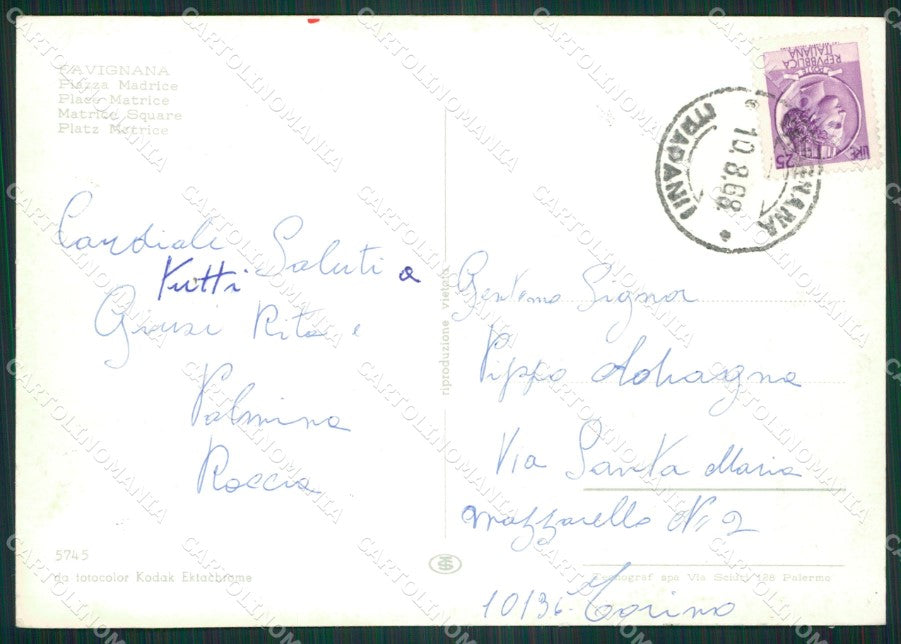 FAVIGNANA
Piazza Madrice
Place Matrice
Matrice Square
Platz Matrice
Cordiali Saluti a
Tutti
Giusi Rita e
Palmina
Roccia
5745
da fotocolor Kodak Ektachrome
riproduzione vietata
REPVBBLICA
ITALIANA
POSTE
LIRE 25
10.8.68
(TRAPANI)
Gent.mo Signor
Pippo
Via Santa Maria
Mazzarello N. 2
10136 - Torino
spa Via Schiti 128 Palermo
CARTOLINOMANIA